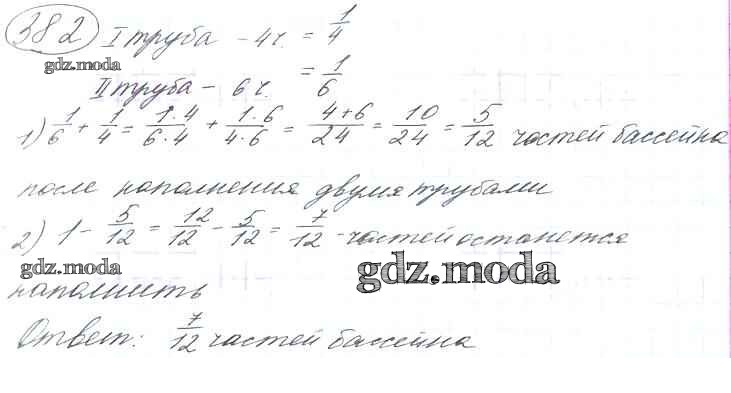 382 I труба - 4 ч. = 1/4
gdz.moda
II труба - 6 ч. = 1/6
1) 1/6 + 1/4 = 1·4/6·4 + 1·6/4·6 = 4+6/24 = 10/24 = 5/12 частей бассейна
после наполнения двумя трубами
2) 1 - 5/12 = 12/12 - 5/12 = 7/12 - частей останется
gdz.moda gdz.moda
наполнить
Ответ: 7/12 частей бассейна